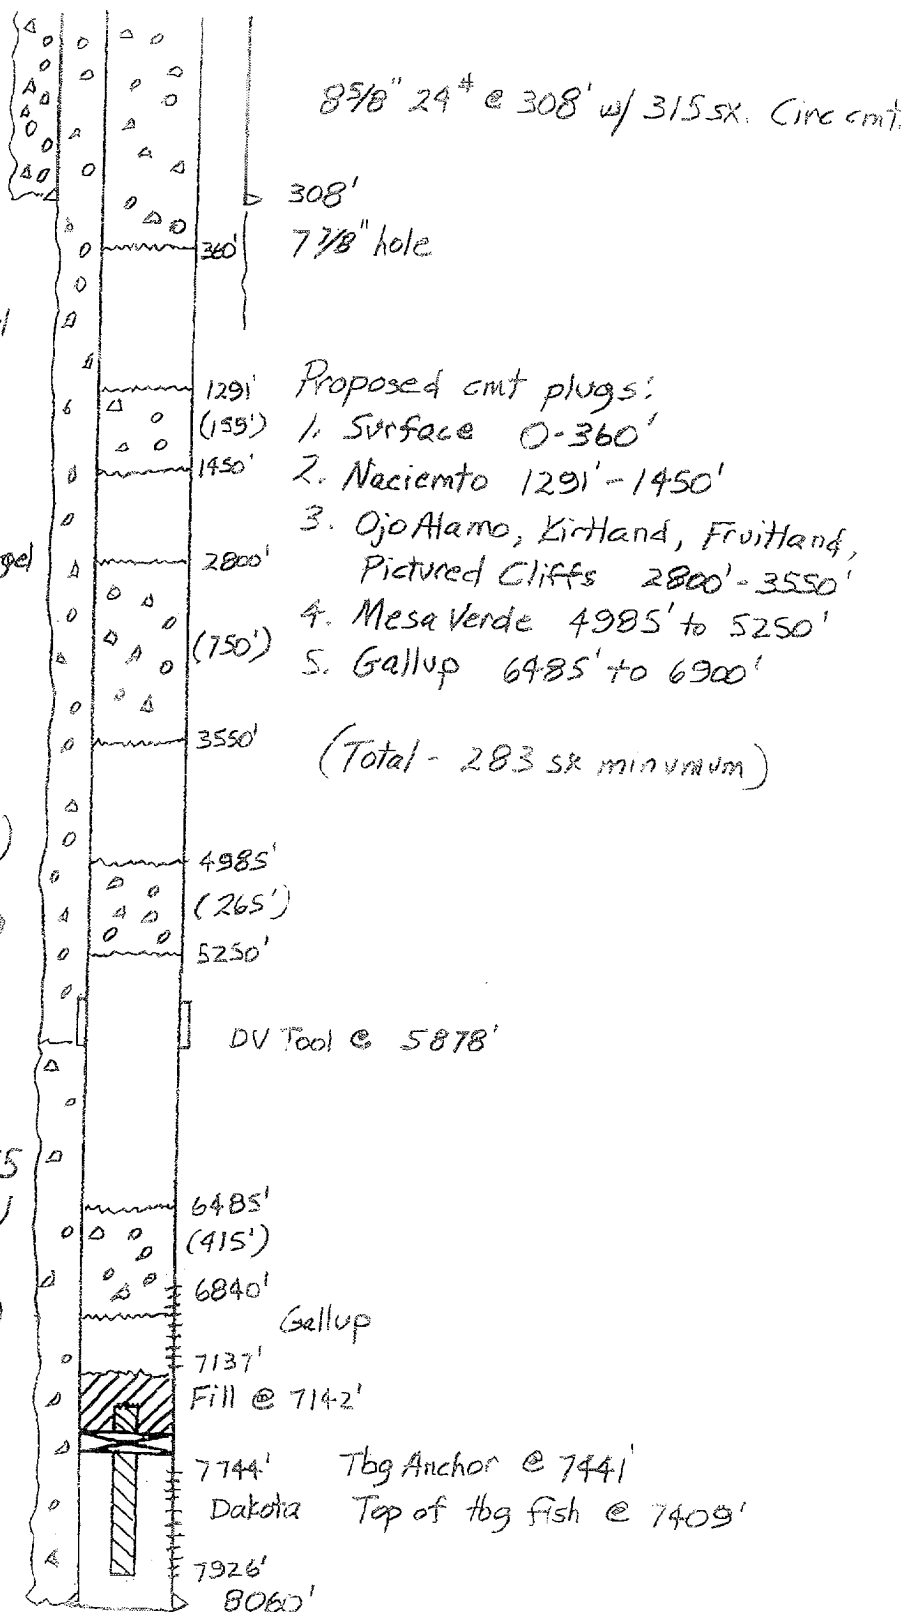 8 5/8" 24# @ 308' w/ 315 sx. Circ cmt.
308'
7 7/8" hole
360'
1291'
(155')
1450'
Proposed cmt plugs:
1. Surface 0-360'
2. Naciemto 1291'-1450'
3. Ojo Alamo, Kirtland, Fruitland,
Pictured Cliffs 2800'-3550'
4. Mesa Verde 4985' to 5250'
5. Gallup 6485' to 6900'
(Total - 283 sk minumum)
gel
2800'
(750')
3550'
4985'
(265')
5250'
DV Tool @ 5878'
6485'
(415')
6840'
Gallup
7137'
Fill @ 7142'
7744' Tbg Anchor @ 7441'
Dakota Top of tbg fish @ 7409'
7926'
8060'